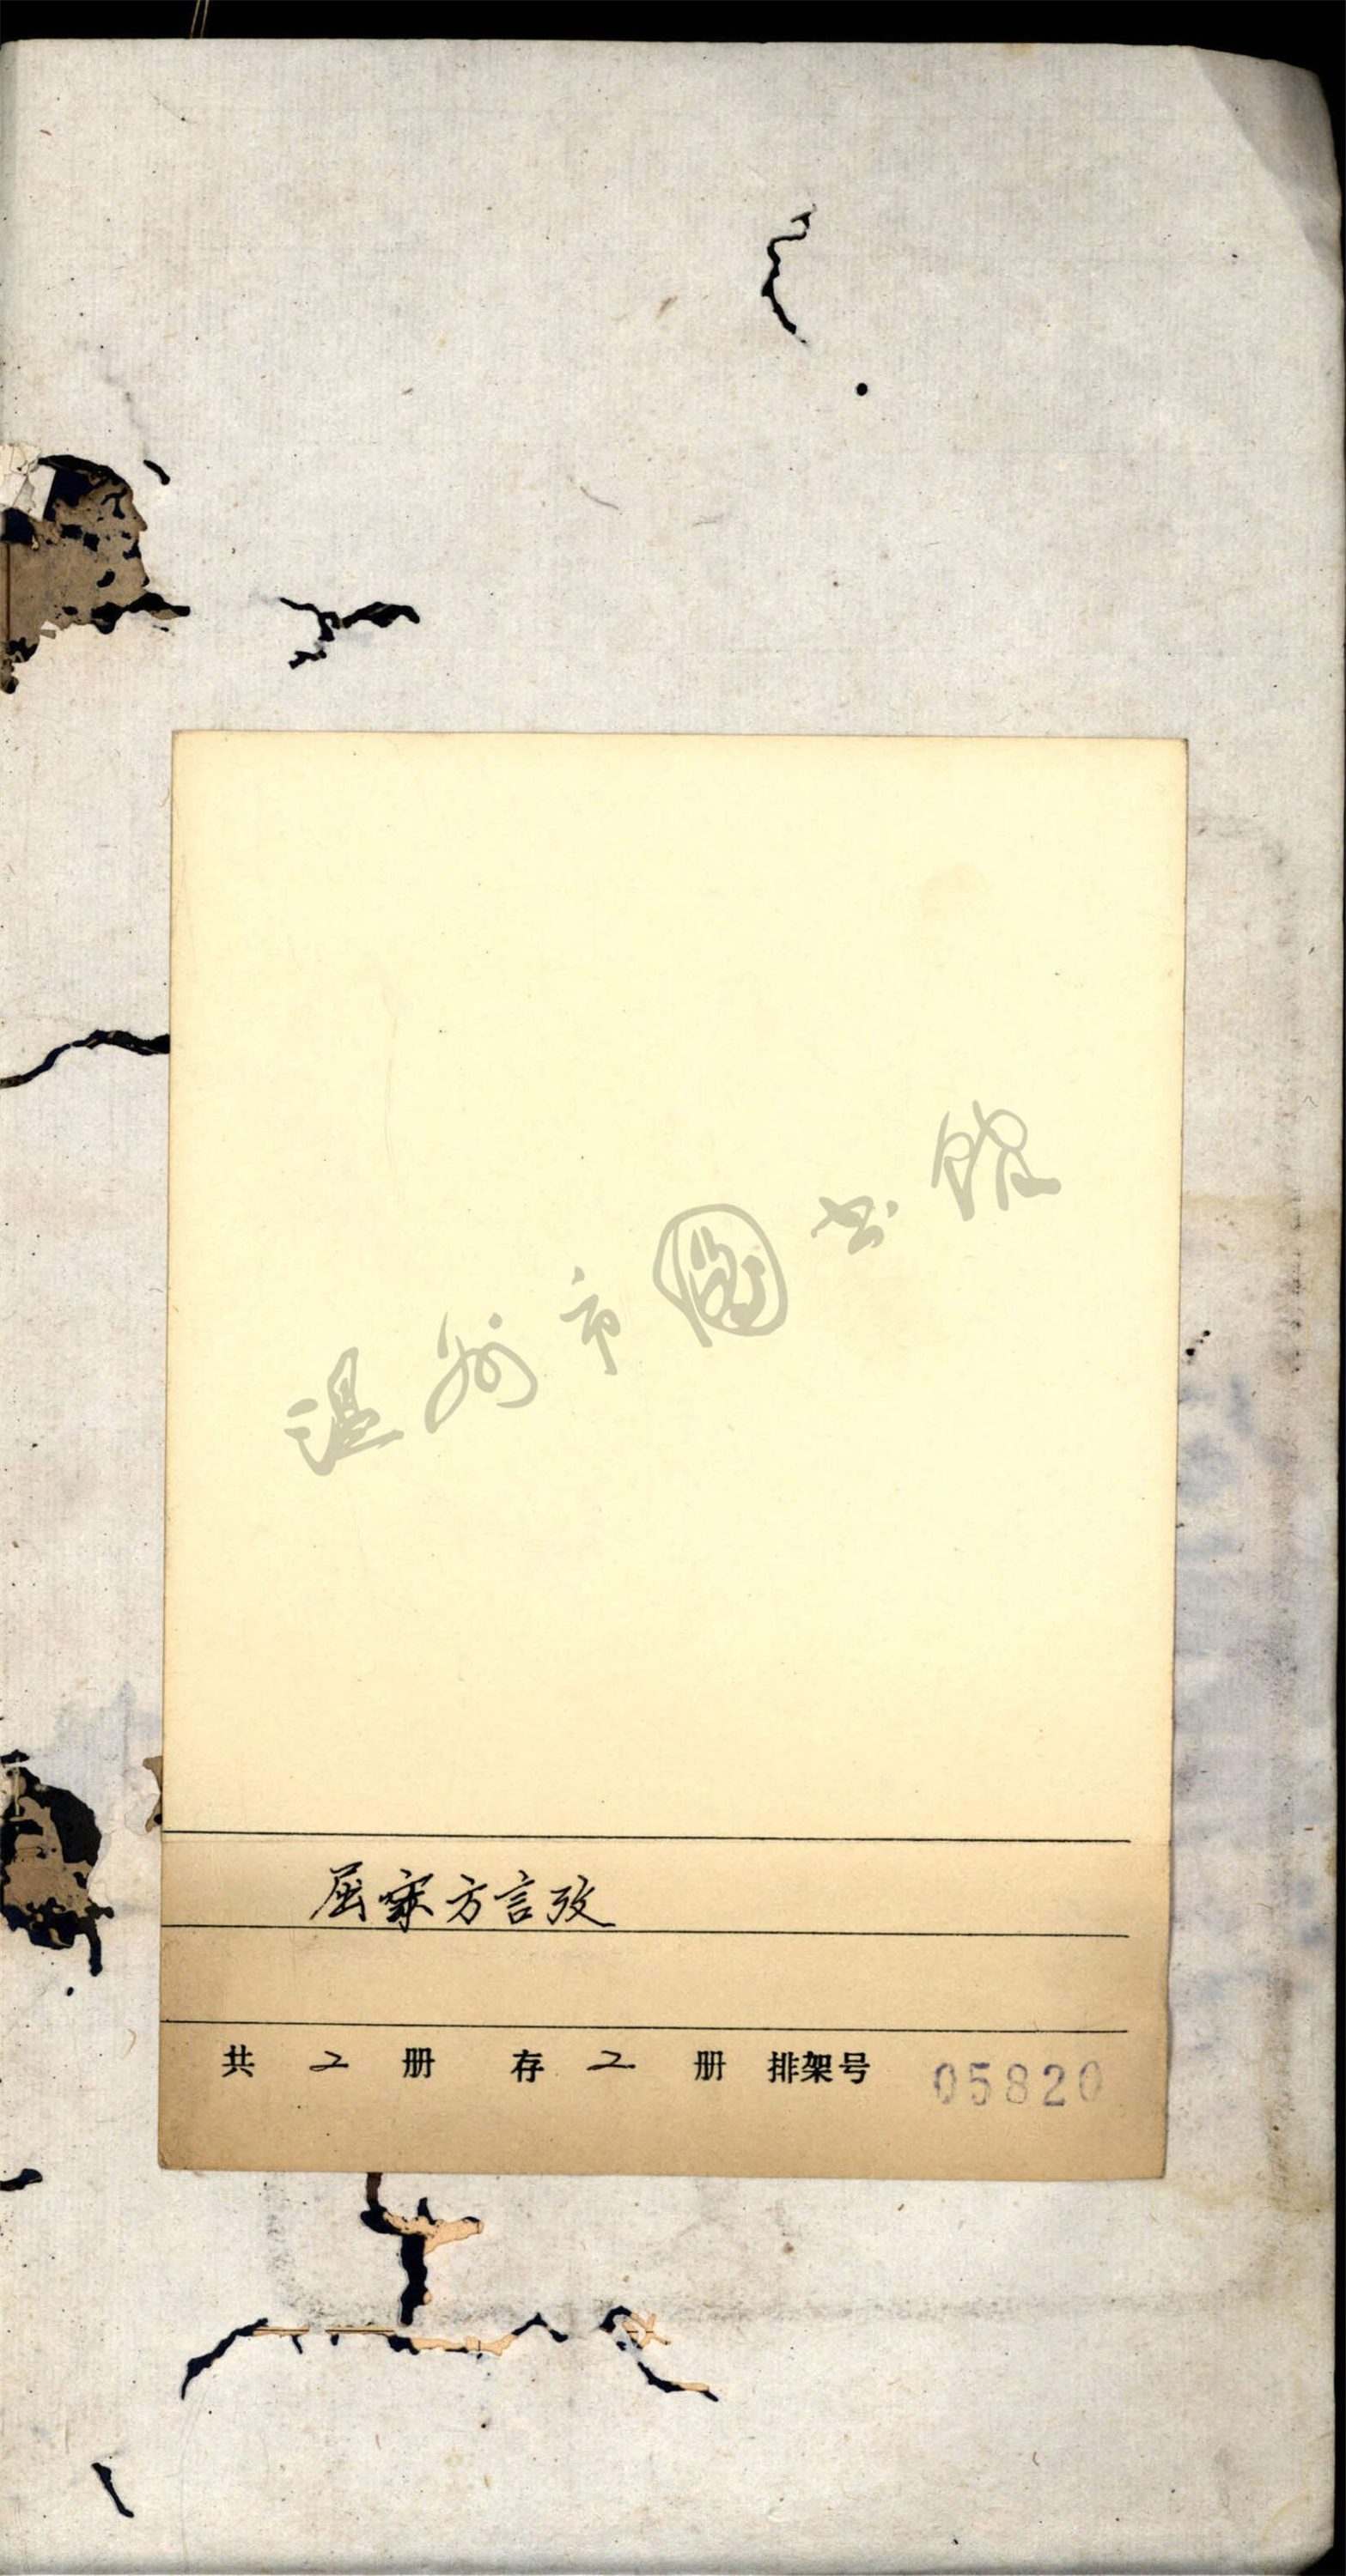 温州市圖书馆
屈宋方言攷
共 2 册 存 2 册 排架号 05820